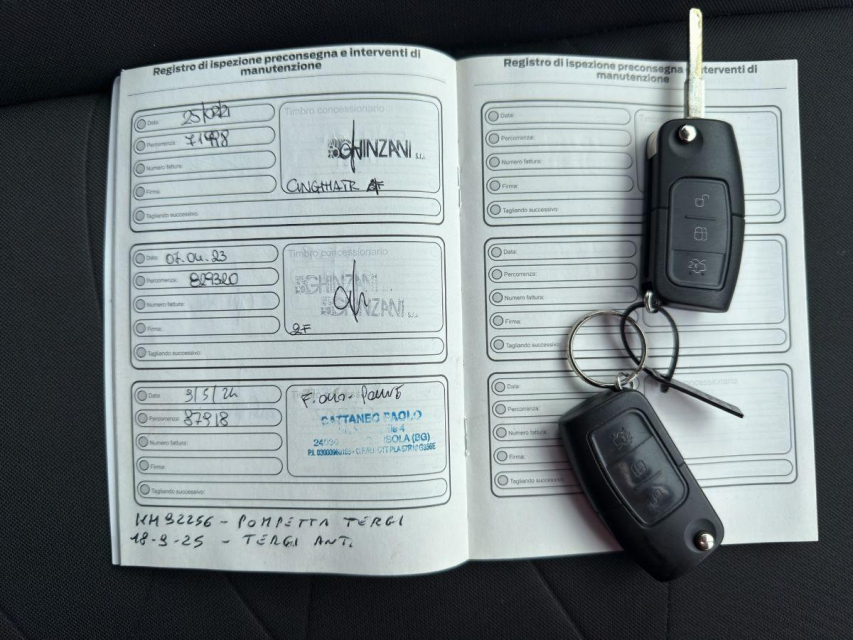 Registro di ispezione preconsegna e interventi di
manutenzione
Data:
Percorrenza:
Numero fattura:
Firma:
Tagliando successivo:
Timbro concessionario
GHINZANI S.r.l.
Data: 07.04.23
Percorrenza:
Numero fattura:
Firma:
Tagliando successivo:
Timbro concessionario
GHINZANI
GHINZANI S.r.l.
Data: 3/5/24
Percorrenza: 87918
Numero fattura:
Firma:
Tagliando successivo:
CATTANEO PAOLO
ISOLA (BG)
KM 92256 - POMPETTA TERGI
18-9-25 - TERGI ANT.
Registro di ispezione preconsegna e interventi di
manutenzione
Data:
Percorrenza:
Numero fattura:
Firma:
Tagliando successivo:
Data:
Percorrenza:
Numero fattura:
Firma:
Tagliando successivo:
Data:
Percorrenza:
Numero fattura:
Firma:
Tagliando successivo: